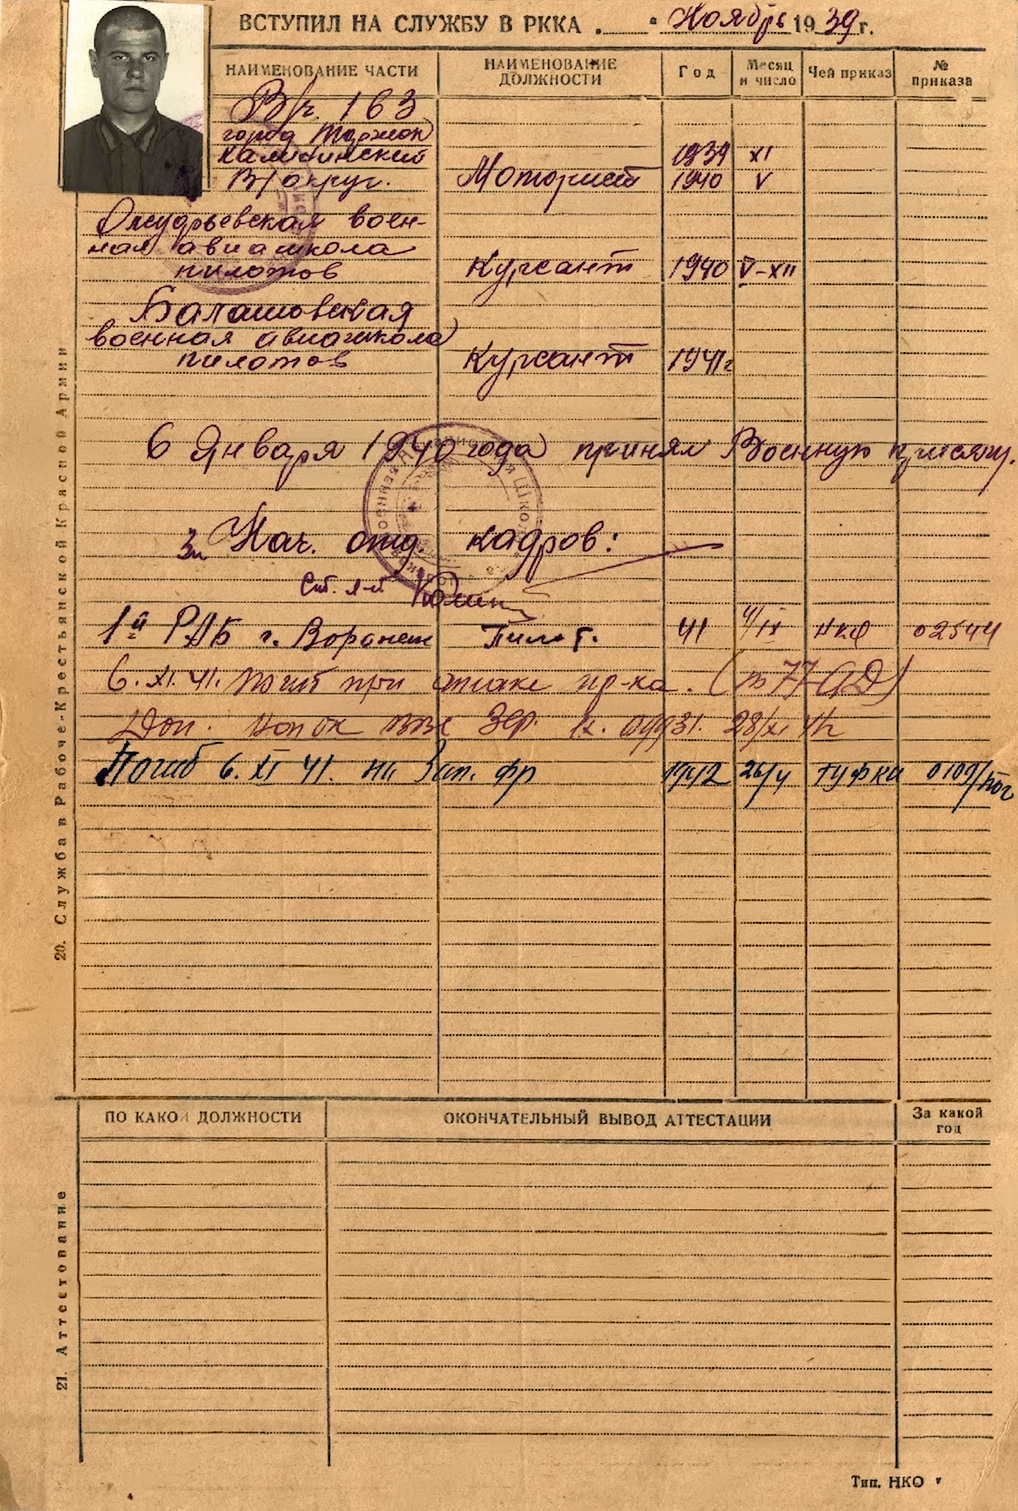 ВСТУПИЛ НА СЛУЖБУ В РККА „ “ Ноябрь 1939 г.
НАИМЕНОВАНИЕ ЧАСТИ НАИМЕНОВАНИЕ ДОЛЖНОСТИ Год Месяц и число Чей приказ № приказа
В/ч. 163
город Торжок
Калининский 1939 XI
В/округ. Моторист 1940 V
военная
авиашкола
пилотов Курсант 1940 V-XII
Балашовская
военная авиашкола
пилотов Курсант 1941г
6 Января 1940 года принял Военную присягу.
Нач. отд. кадров:
1й РАБ г. Воронеж Пилот. 41 4/IX НКО 02544
6.XI.41. погиб при атаке пр-ка. (77 АД)
28/XI 42
Погиб 6.XI 41. на Зап. фр 1942 26/V ГУФКА 0109/пог
20. Служба в Рабоче-Крестьянской Красной Армии
ПО КАКОЙ ДОЛЖНОСТИ ОКОНЧАТЕЛЬНЫЙ ВЫВОД АТТЕСТАЦИИ За какой год
21. Аттестование
Тип. НКО